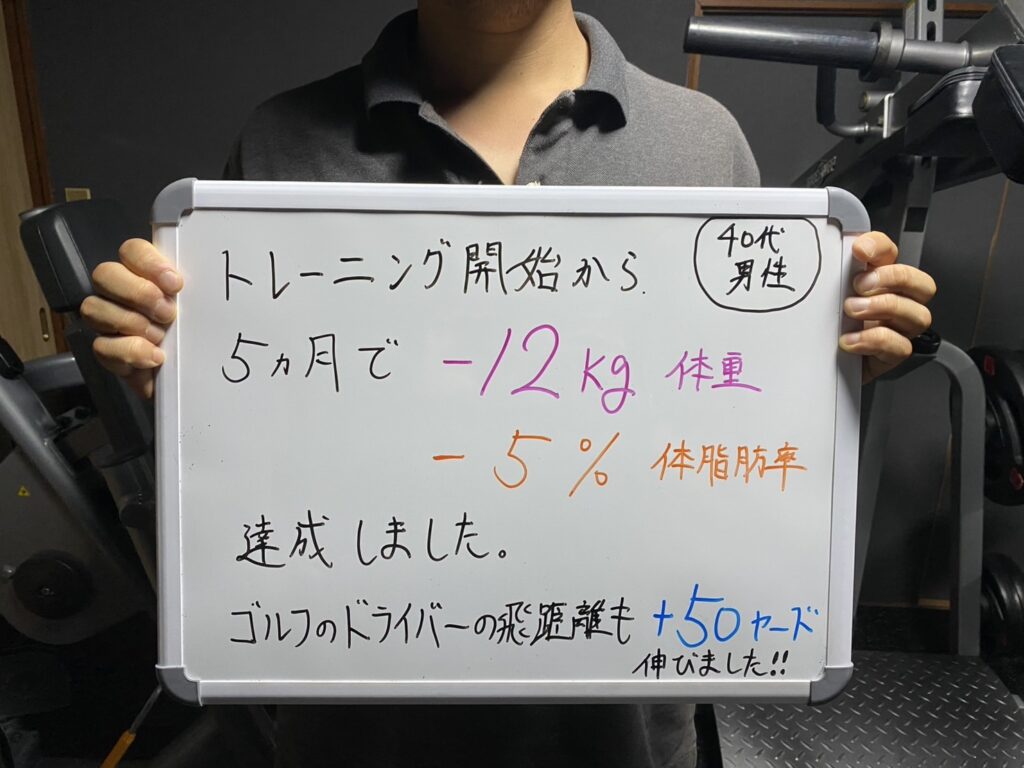 トレーニング開始から
40代
男性
5ヵ月で -12kg 体重
-5% 体脂肪率
達成しました。
ゴルフのドライバーの飛距離も +50ヤーズ
伸びました!!